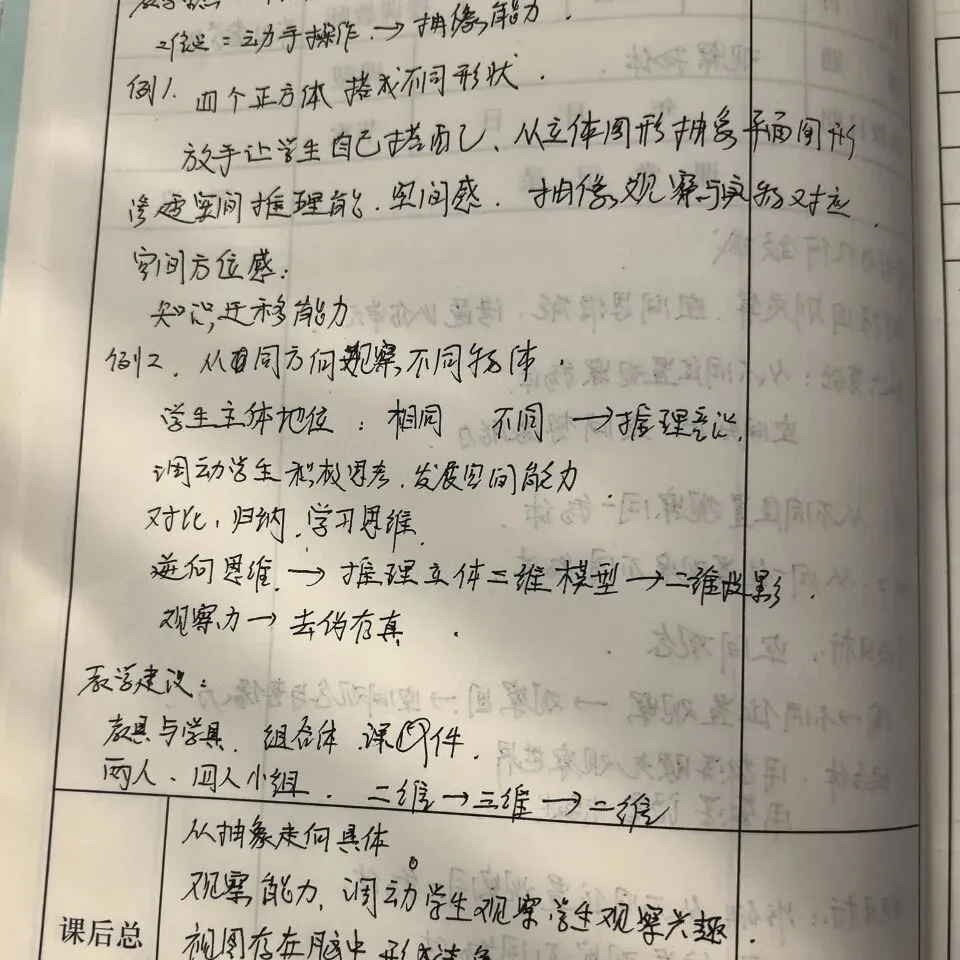 动手操作 → 抽像能力.
例1. 四个正方体 搭成不同形状.
放手让学生自己搭、从立体图形抽象平面图形
渗透空间推理能. 空间感. 抽像,观察与实物对应.
空间方位感:
知识迁移能力
例2. 从同方向观察不同物体.
学生主体地位: 相同 不同 → 推理意识.
调动学生积极思考.发展空间能力.
对比, 归纳.学习思维.
逆向思维. → 推理立体三维模型 → 二维投影.
观察力 → 去伪存真.
教学建议:
教具与学具. 组合体 课件.
两人. 四人小组. 二维 → 三维 → 二维
从抽象走向具体
课后总
观察能力, 调动学生观察.学生观察兴趣.
视图存在脑中